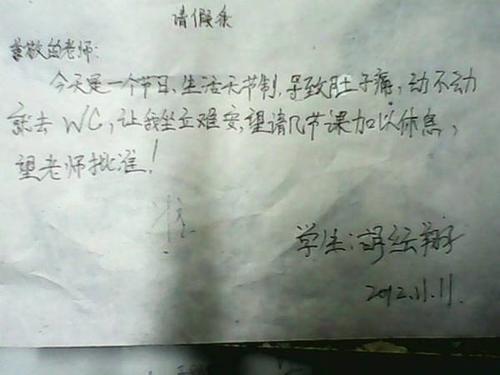 请假条
尊敬的老师:
今天是一个节日、生活无节制,导致肚子痛,动不动
就去WC,让我坐立难安,望请几节课加以休息,
望老师批准!
准
学生:
2012.11.11.